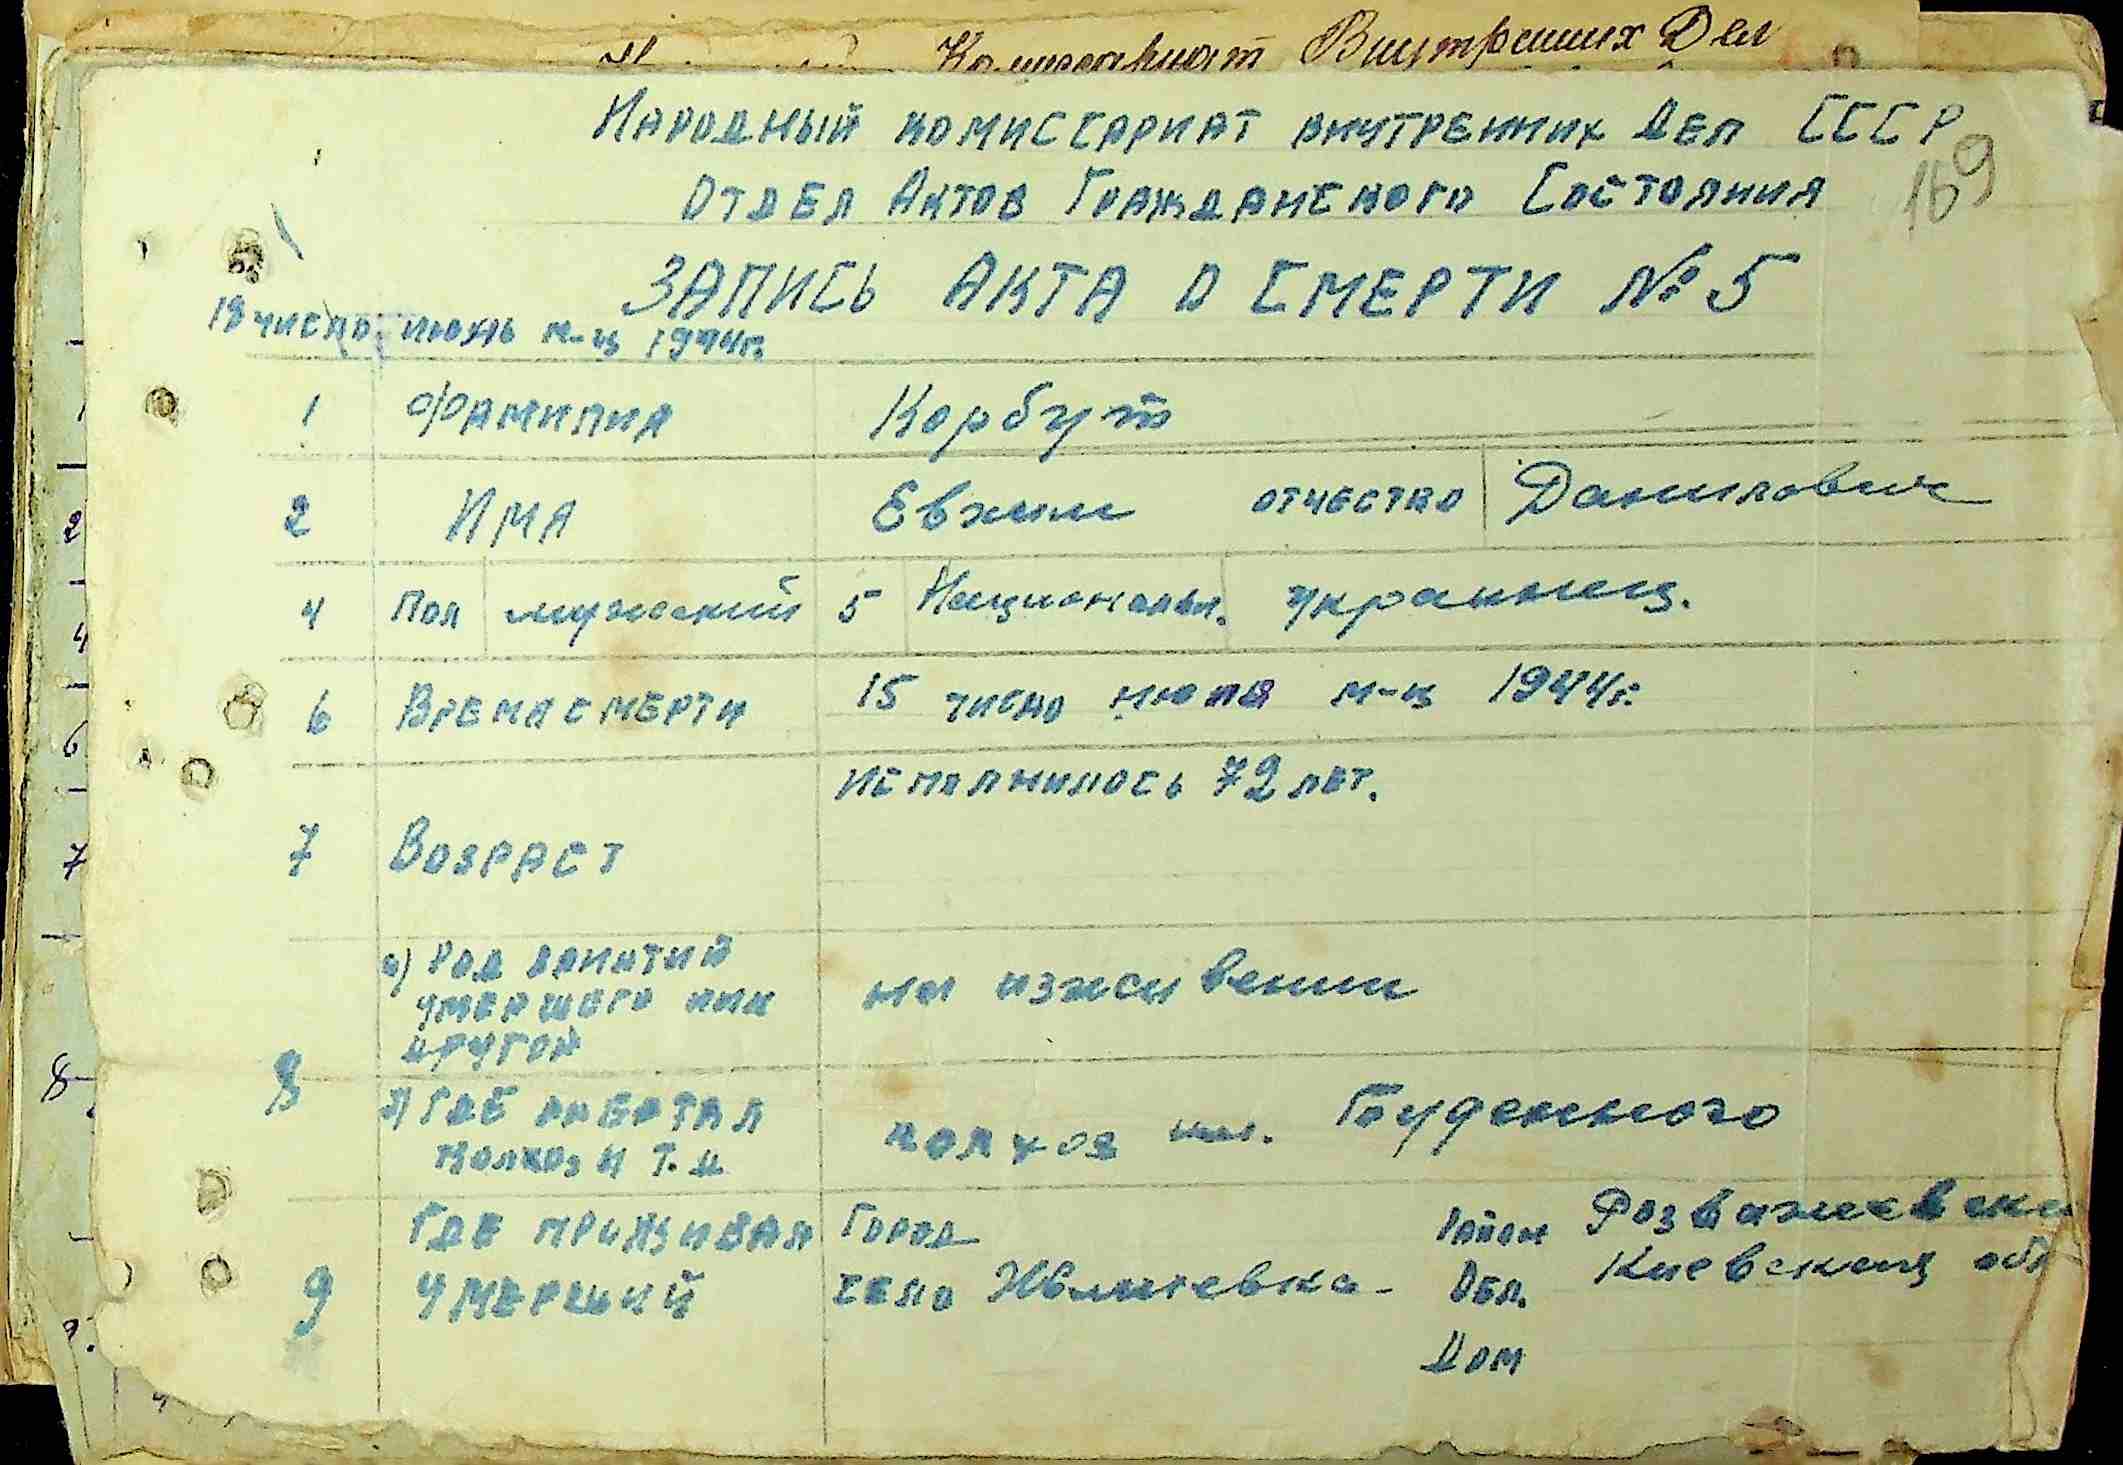 Комиссариат Внутрених Дел
Народный комиссариат внутренних Дел СССР
169
Отдел Актов Гражданского Состояния
Запись Акта о Смерти № 5
18 число июль м-ц 1944г.
1 Фамилия Корбут
2 Имя Евхим отчество Данилович
4 Пол мужской 5 Национальн. украинец.
6 Время смерти 15 число июля м-ц 1944г.
исполнилось 72 лет.
7 Возраст
а) Род занятий
умершего или на изживении
другой
8
б) где работал
колхоз и т.д. колхоз им. Буденного
Где проживал Город Район Розважевски
9 умерший село Жмиевка Обл. Киевская обл
Дом